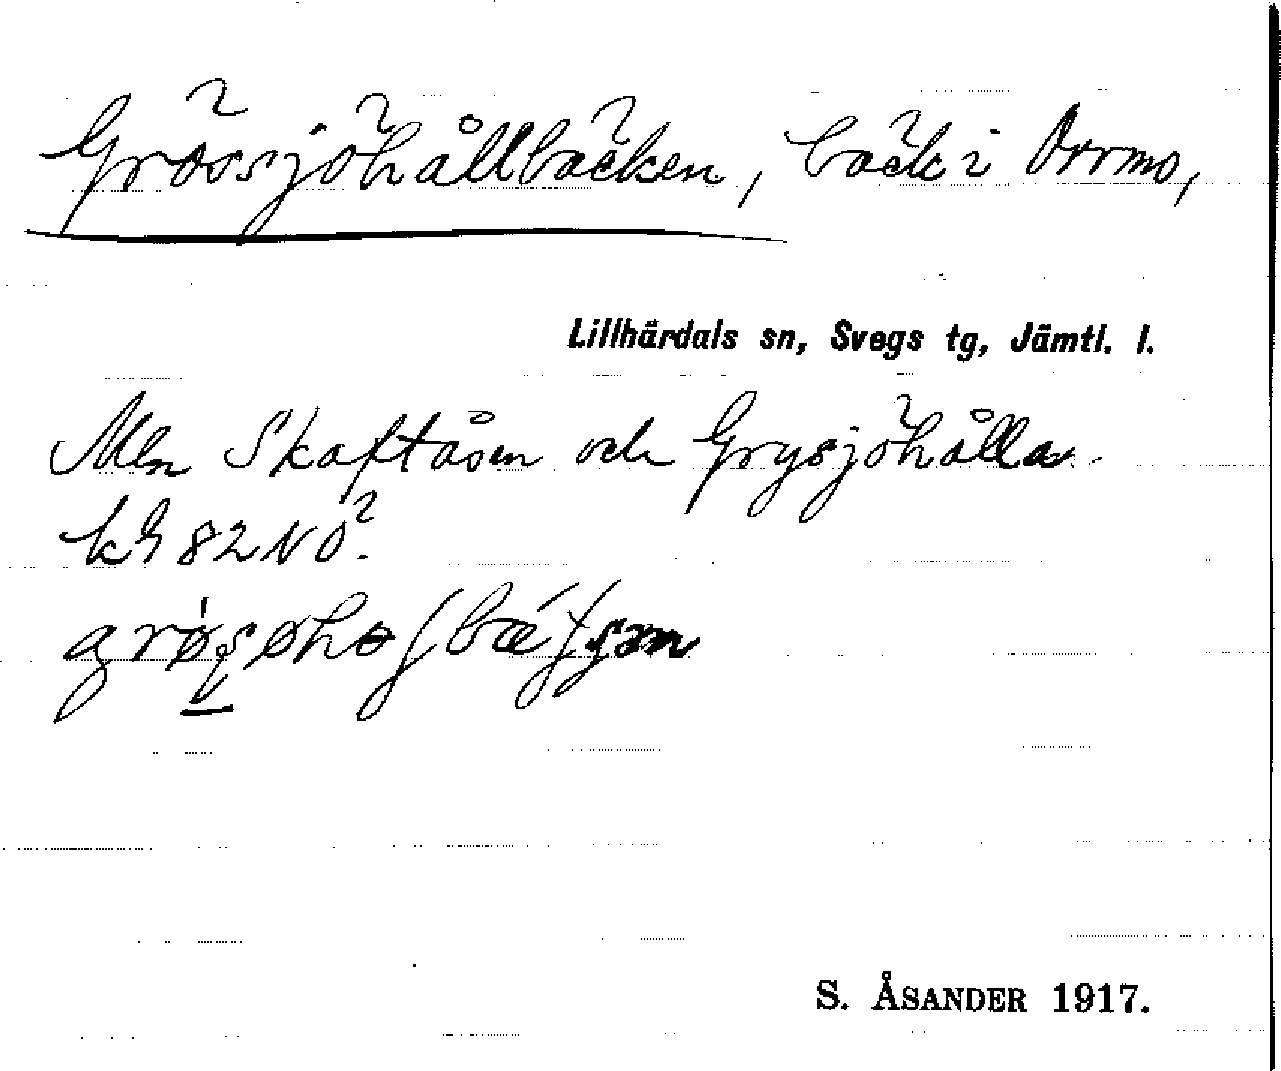 Grössjöhållbäcken, bäck i Orrmo,
Lillhärdals sn, Svegs tg, Jämtl. l.
Mln Skaftåsen och Grysjöhålla.
kg 82 NO².
S. ÅSANDER 1917.